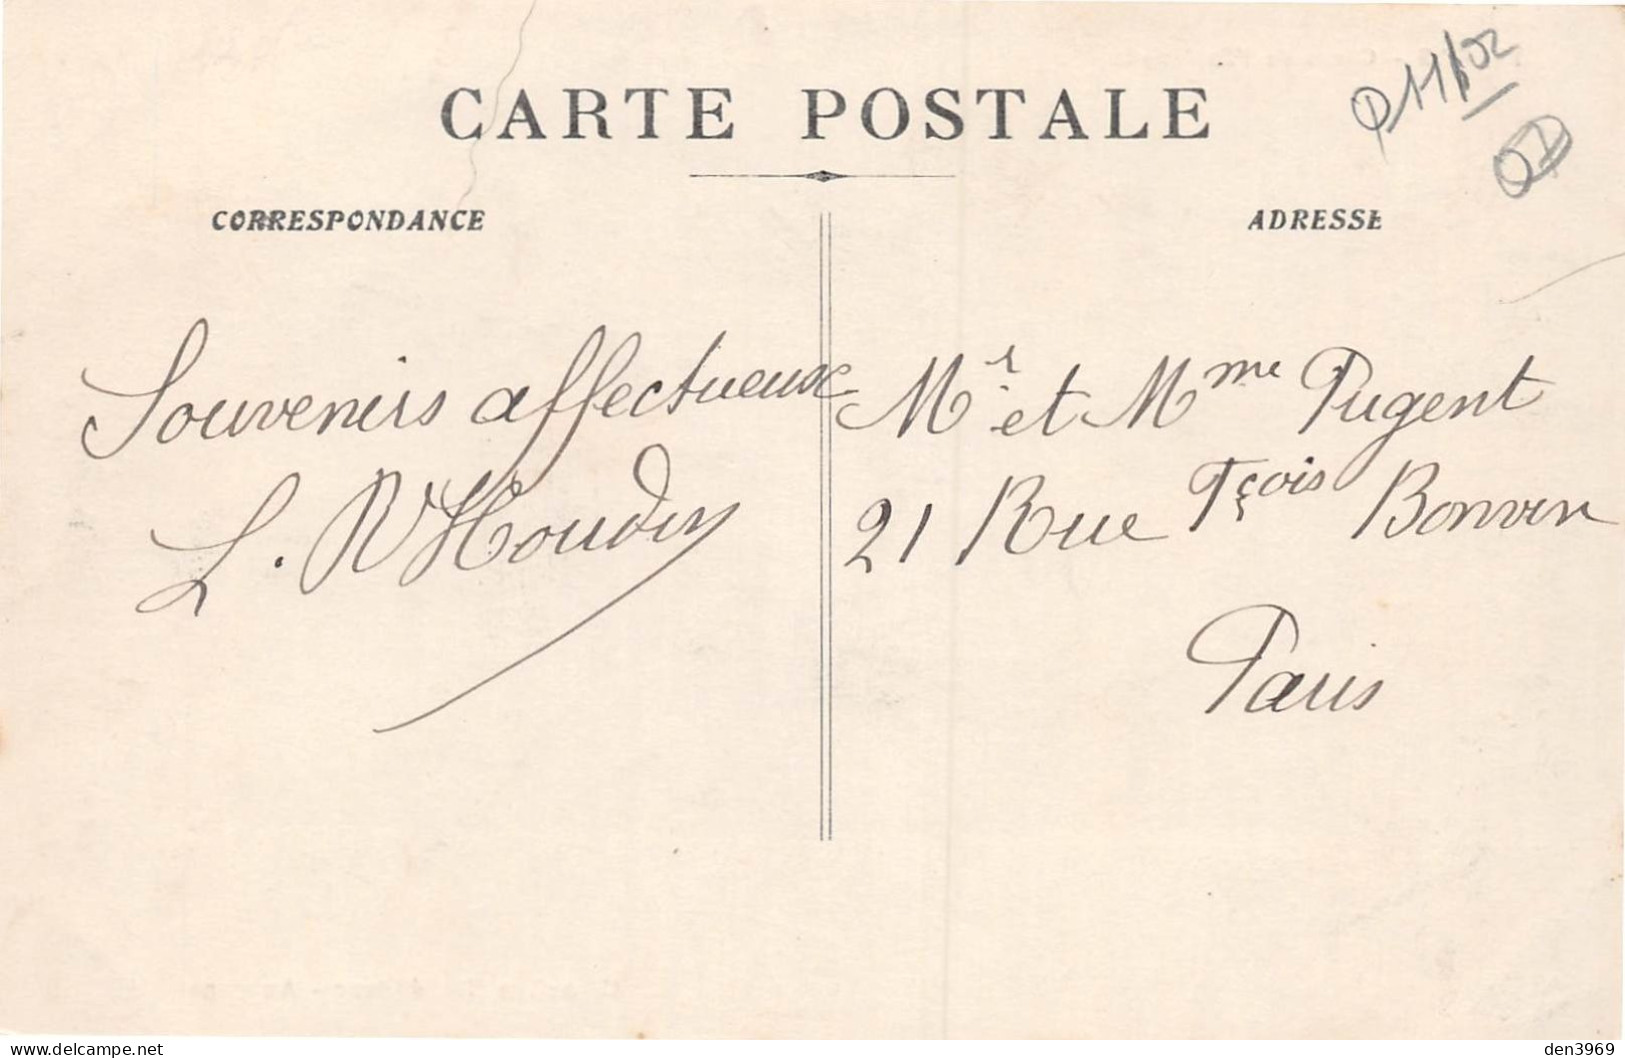 CARTE POSTALE
CORRESPONDANCE
ADRESSE
Souvenirs affectueux
L. R Houdin
Mr et Mme Pugent
21 Rue Fçois Bonvin
Paris
delcampe.net
den3969